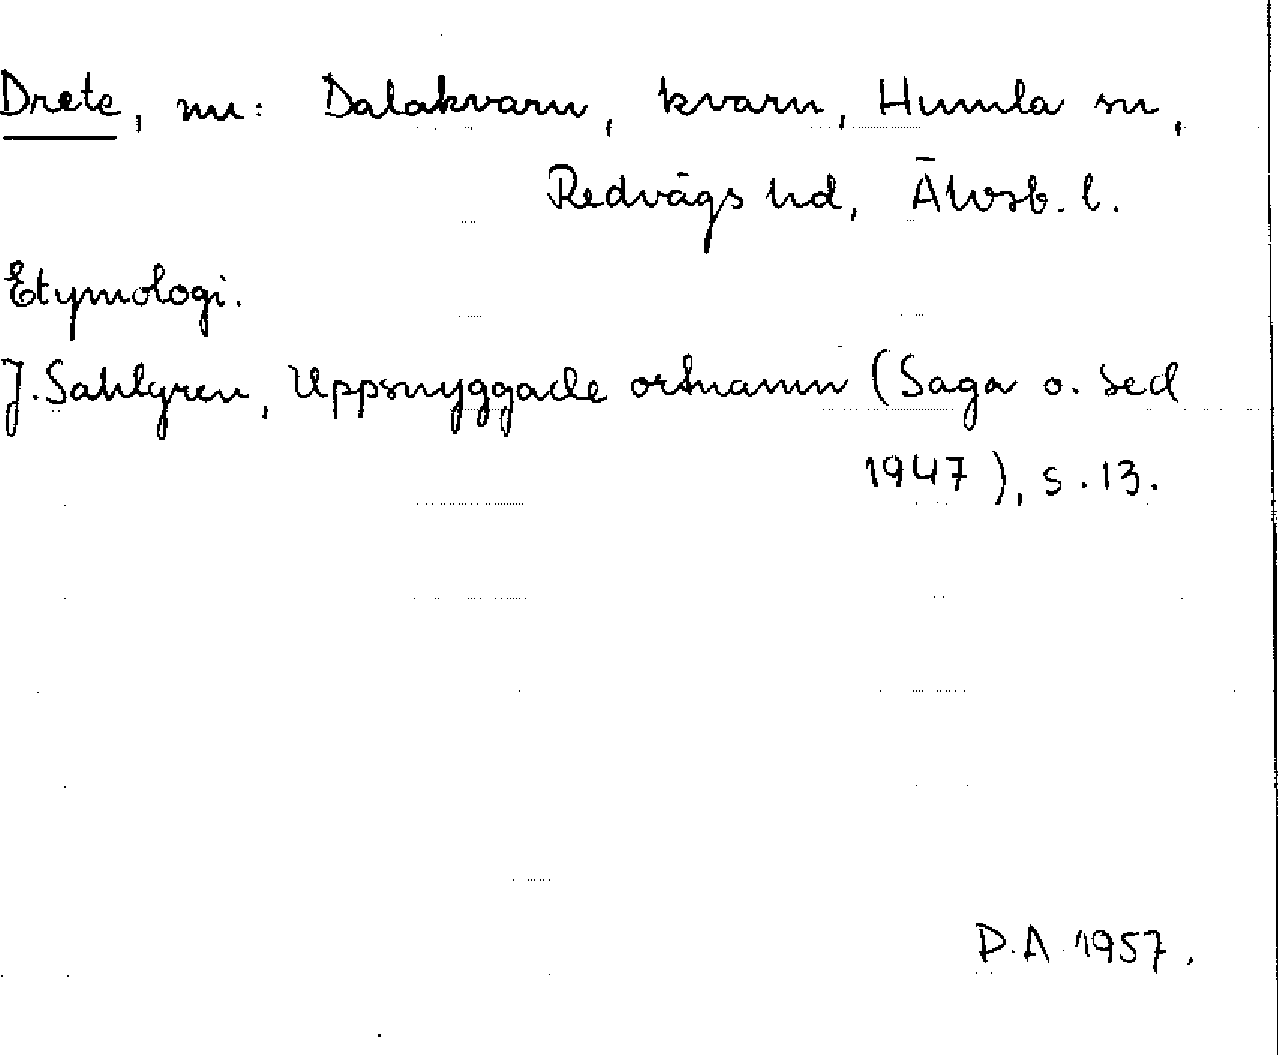 Drete, nu: Dalakvarn, kvarn, Humla sn,
Redvägs hd, Älvsb. l.
Etymologi.
J. Sahlgren, Uppsnyggade ortnamn (Saga o. Sed
1947), s. 13.
D.A 1957.